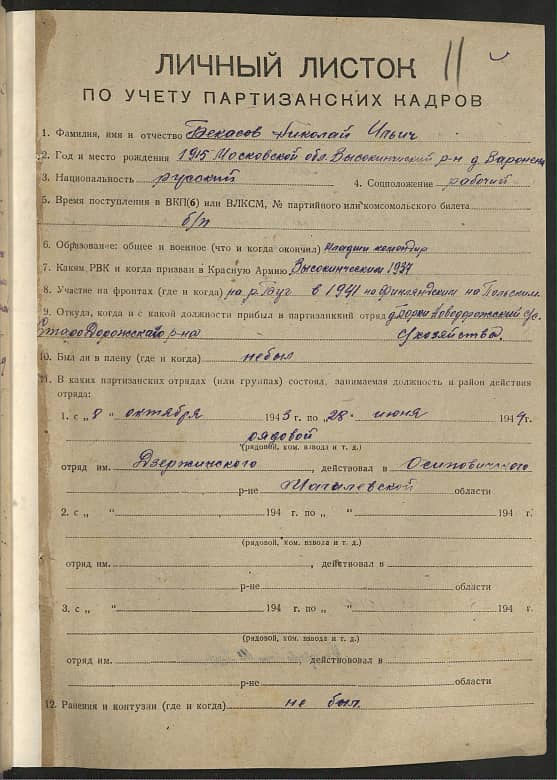 11
ЛИЧНЫЙ ЛИСТОК
ПО УЧЕТУ ПАРТИЗАНСКИХ КАДРОВ
1. Фамилия, имя и отчество Бекасов Николай Ильич
2. Год и место рождения 1915 Московской обл. Высокинический р-н д.
3. Национальность русский 4. Соцположение рабочий
5. Время поступления в ВКП(б) или ВЛКСМ, № партийного или комсомольского билета
б/п
6. Образование: общее и военное (что и когда окончил) командир
7. Каким РВК и когда призван в Красную Армию Высокиническим 1937
8. Участие на фронтах (где и когда) на р. в 1941 на Финляндским на Польским
9. Откуда, когда и с какой должности прибыл в партизанский отряд
Стародорожского р-на хозяйства.
10. Был ли в плену (где и когда) небыл
11. В каких партизанских отрядах (или группах) состоял, занимаемая должность и район действия
отряда:
1. с „ 8 “ октября 1943 г. по „ 28 “ июня 1944 г.
рядовой
(рядовой, ком. взвода и т. д.)
отряд им. Дзержинского, действовал в Осиповичского
р-не Могилевской области
2. с „ “ 194 г. по „ “ 194 г.
(рядовой, ком. взвода и т. д.)
отряд им. , действовал в
р-не области
3. с „ “ 194 г. по „ “ 194 г.
(рядовой, ком. взвода и т. д.)
отряд им. действовал в
р-не области
12. Ранения и контузии (где и когда) не был.